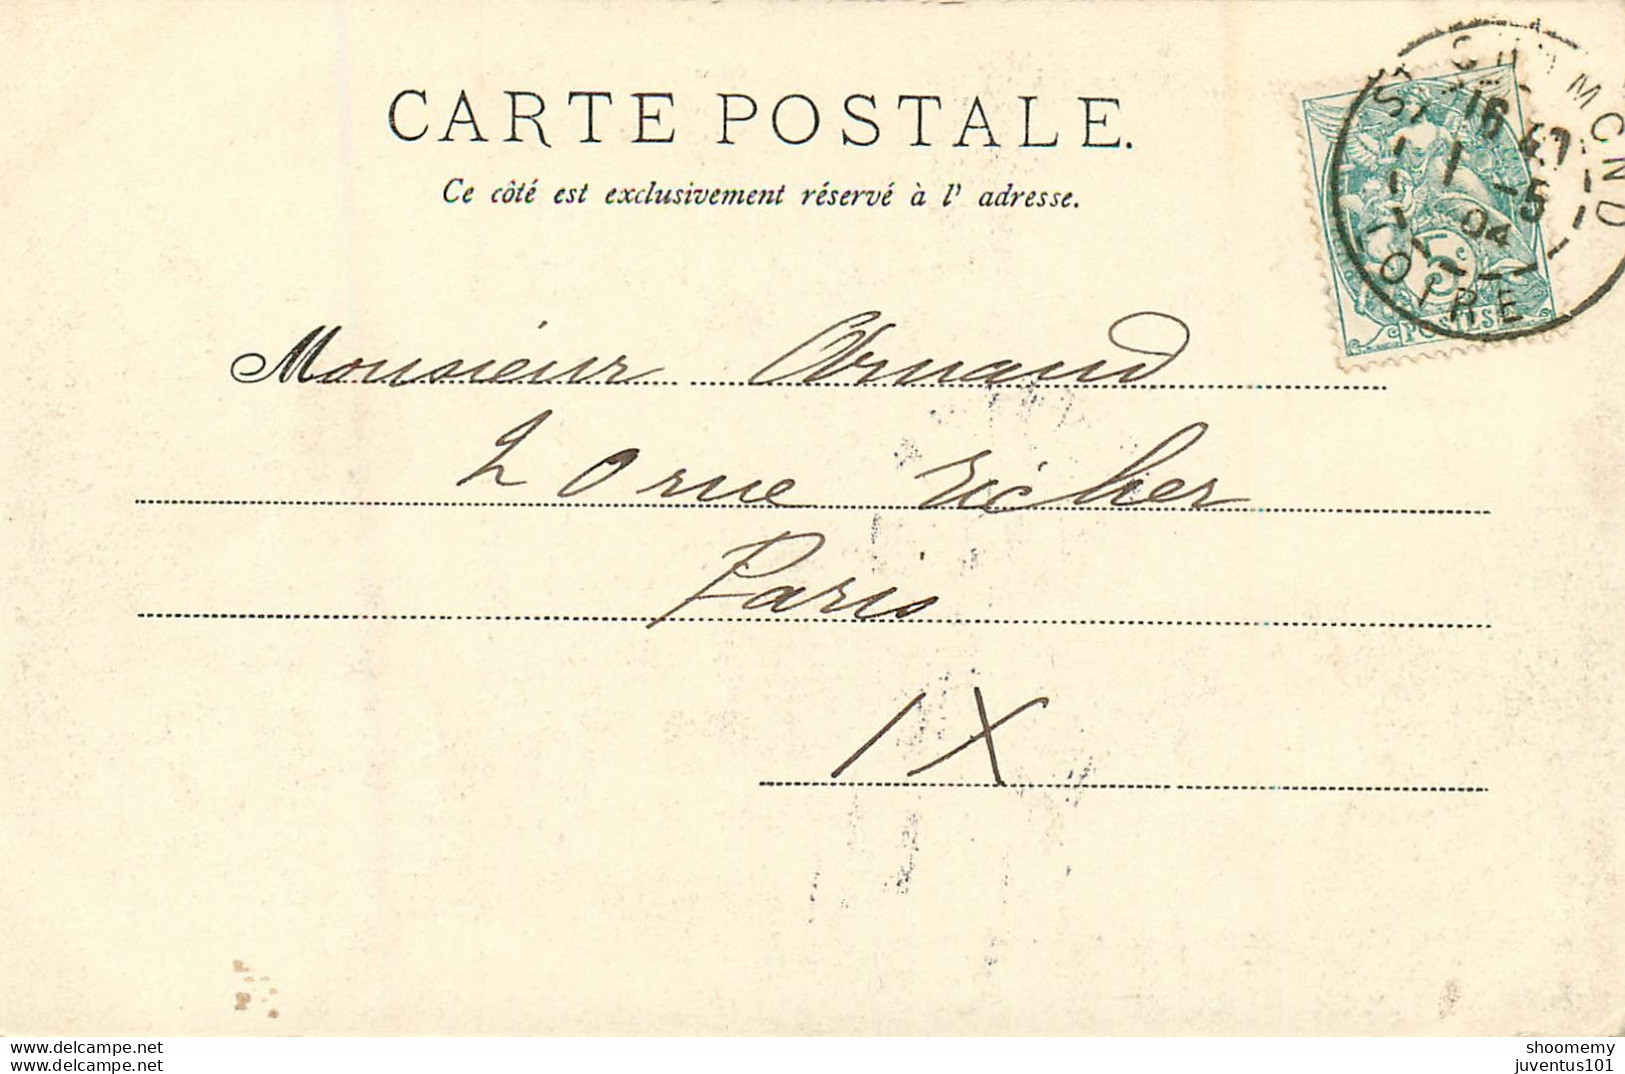 CARTE POSTALE.
Ce côté est exclusivement réservé à l' adresse.
ST CHAMOND
16 47
1 -5
04
LOIRE
5c
POSTES
Monsieur Armand
20 rue richer
Paris
IX
www.delcampe.net
www.delcampe.net
shoomemy
juventus101